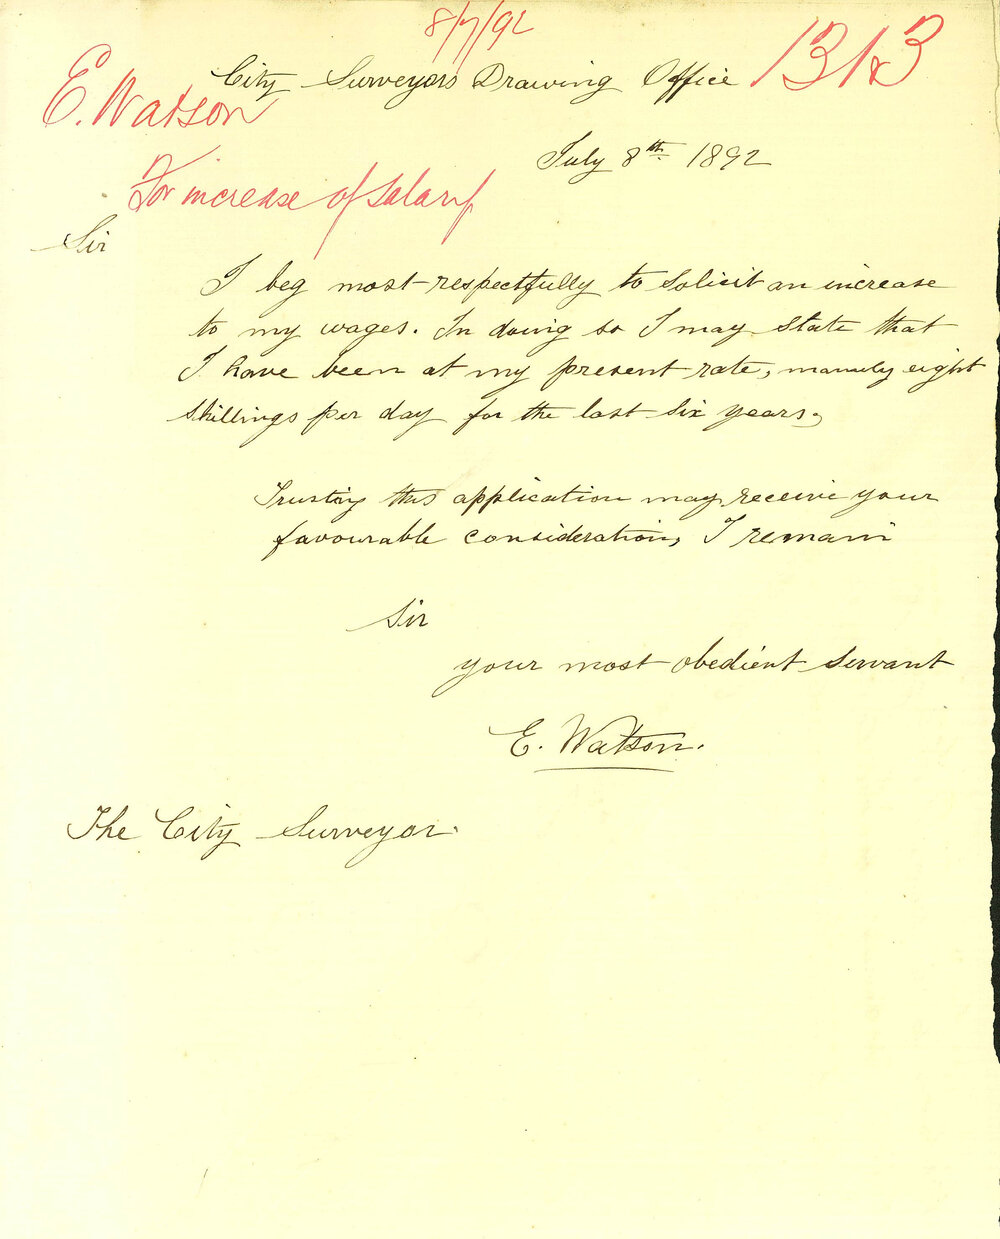 8/7/92
1313
City Surveyors Drawing Office
E. Watson
July 8th 1892
For increase of Salary
Sir
I beg most respectfully to solicit an increase
to my wages. In doing so I may state that
I have been at my present rate, namely eight
shillings per day for the last six years,
Trusting this application may receive your
favourable consideration, I remain
Sir
your most obedient servant
E. Watson.
The City Surveyor.